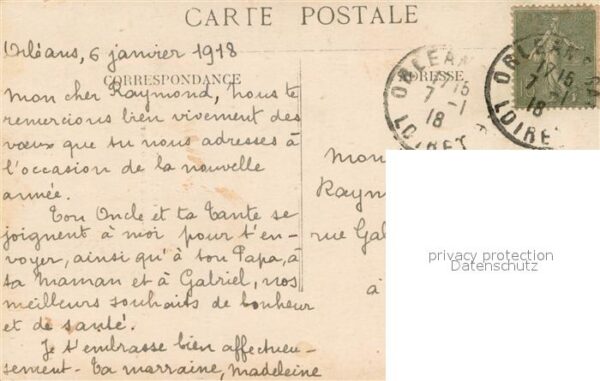 CARTE POSTALE
Orléans, 6 janvier 1918
CORRESPONDANCE
Mon cher Raymond, nous te
remercions bien vivement des
vœux que tu nous adresses à
l'occasion de la nouvelle
année.
Ton Oncle et ta Tante se
joignent à moi pour t'en-
voyer, ainsi qu'à ton Papa, à
ta Maman et à Gabriel, nos
meilleurs souhaits de bonheur
et de santé.
Je t'embrasse bien affectueu-
sement - Ta marraine, Madeleine
ADRESSE
Mon
Raym
rue Gab
à
ORLEANS
17 15
7 -1
18
LOIRET
ORLEANS
17 15
7 -1
18
LOIRET
privacy protection
Datenschutz